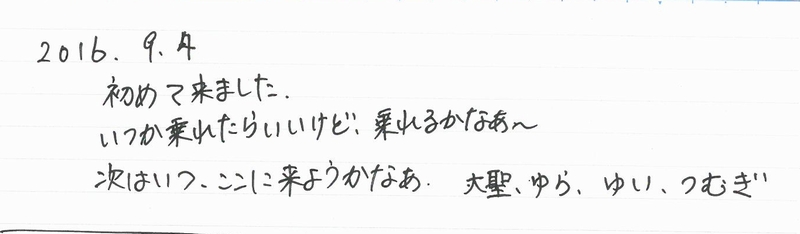 2016. 9. 4
初めて来ました.
いつか乗れたらいいけど、乗れるかなあ〜
次はいつ、ここに来ようかなあ. 大聖、ゆら、ゆい、つむぎ